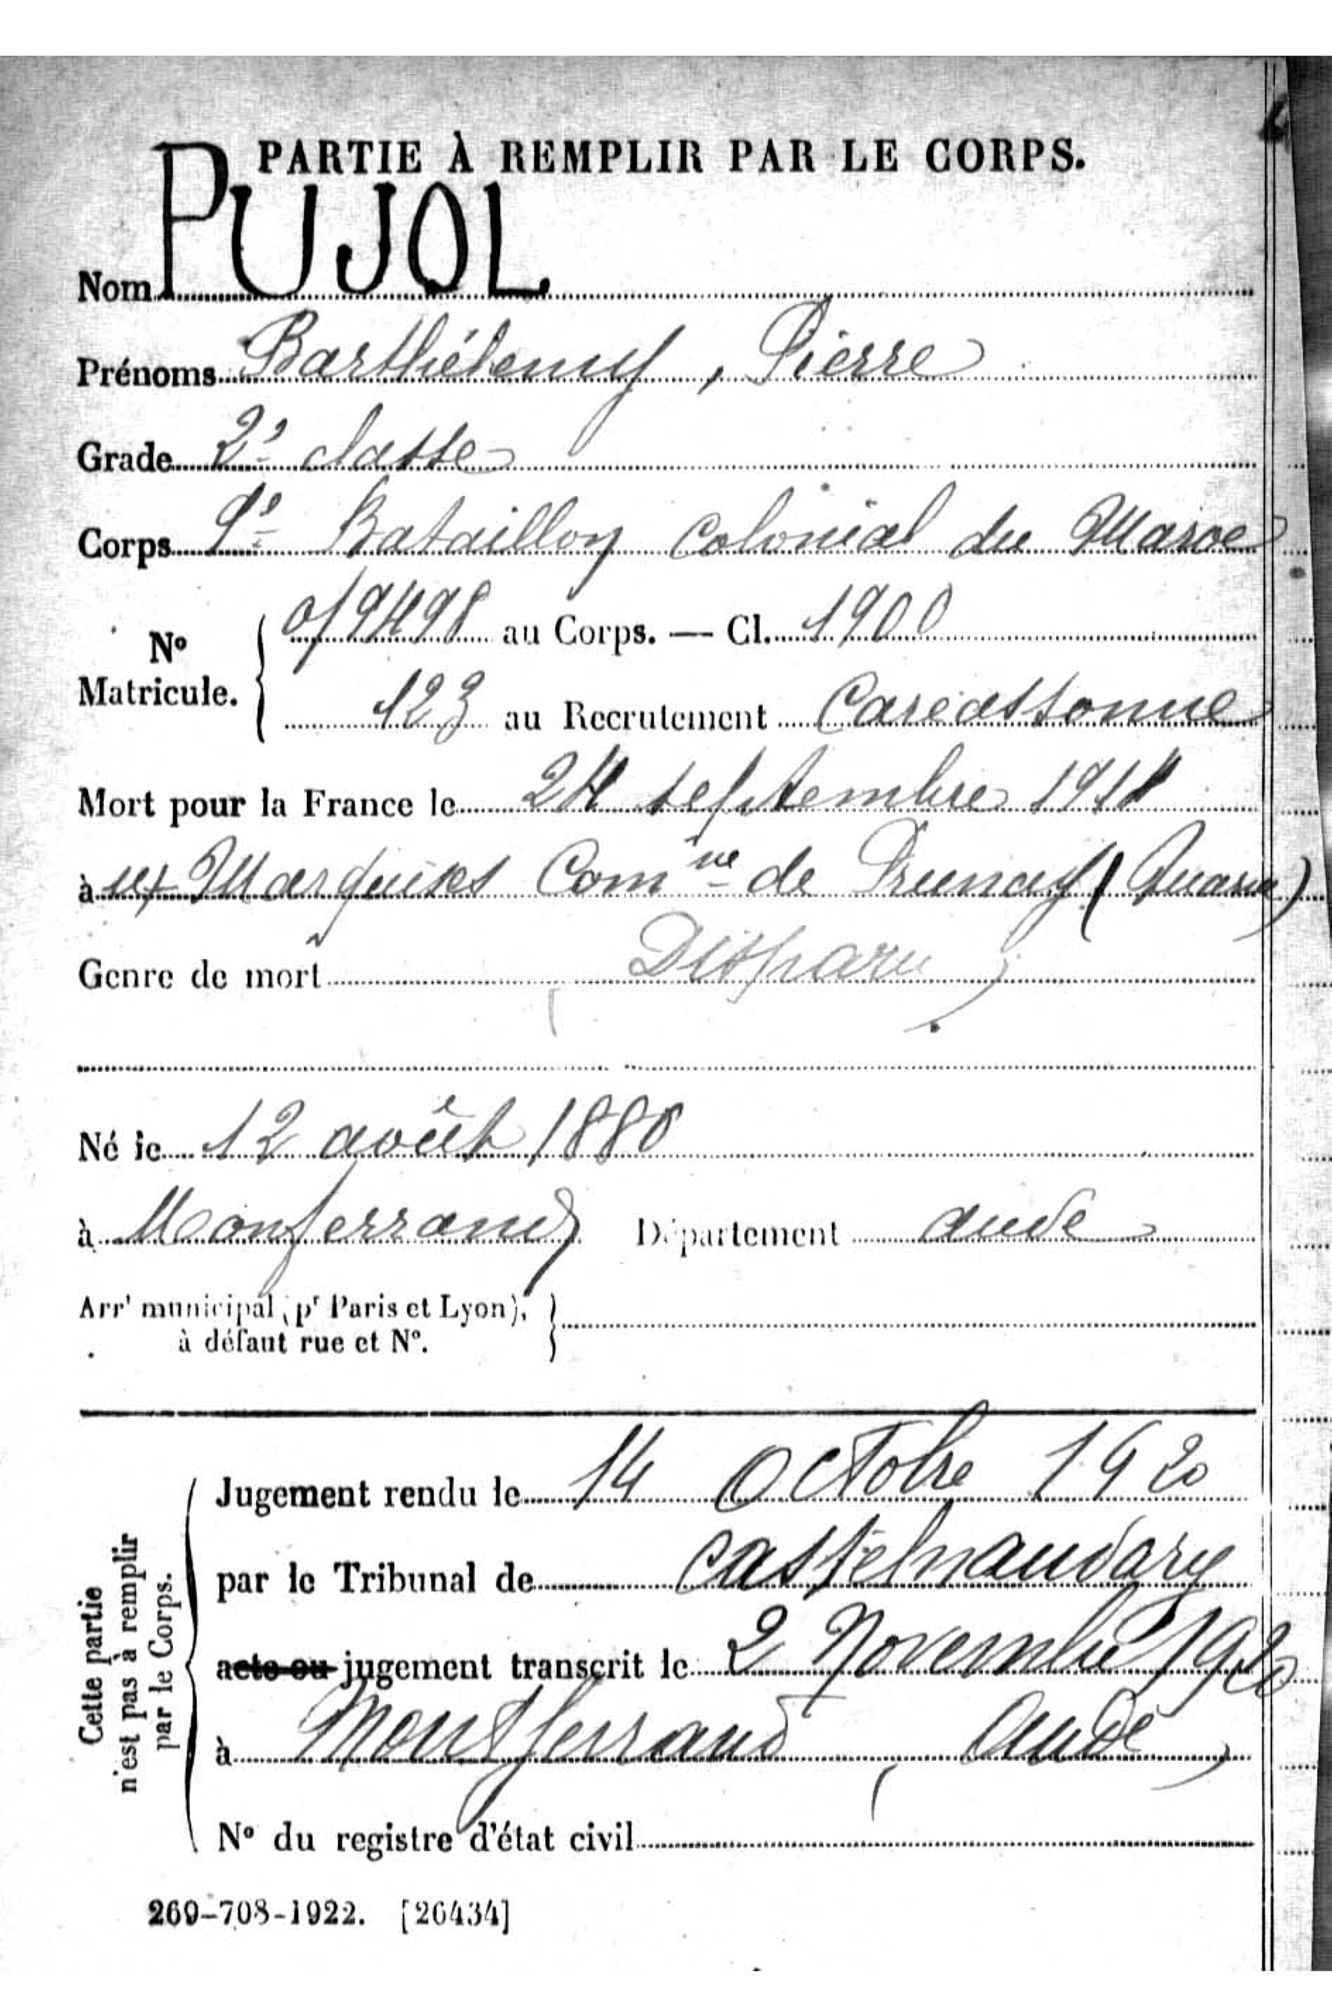 PARTIE À REMPLIR PAR LE CORPS.
Nom PUJOL
Prénoms Barthélemy, Pierre
Grade 2e classe
Corps 9e Bataillon Colonial du Maroc
No Matricule. { 0/9498 au Corps. — Cl. 1900
123 au Recrutement Carcassonne
Mort pour la France le 24 septembre 1914
à Marquises Comne de Prunay (Marne)
Genre de mort Disparu
Né le 12 août 1880
à Monferrand Département Aude
Arrt municipal (pr Paris et Lyon), }
à défaut rue et No.
Cette partie n'est pas à remplir par le Corps.
Jugement rendu le 14 Octobre 1920
par le Tribunal de Castelnaudary
acte ou jugement transcrit le 2 Novembre 1920
à Montferrand (Aude)
No du registre d'état civil
269-708-1922. [26434]